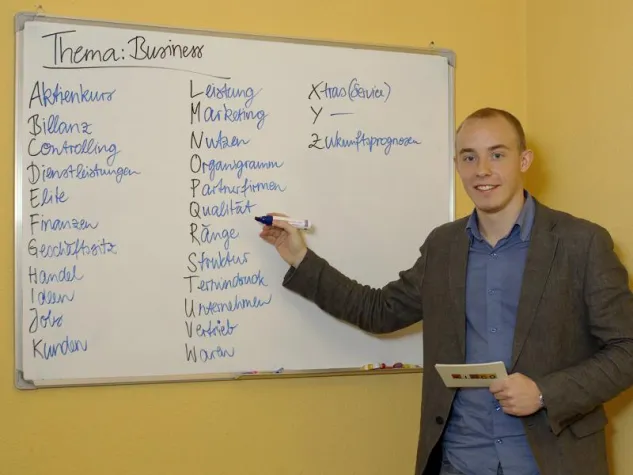 Thema: Business
Aktienkurs
Billanz
Controlling
Dienstleistungen
Elite
Finanzen
Geschäftssitz
Handel
Ideen
Jobs
Kunden
Leistung
Marketing
Nutzen
Organigramm
Partnerfirmen
Qualität
Ränge
Struktur
Termindruck
Unternehmen
Vertrieb
Waren
Xtras (Service)
Y —
Zukunftsprognosen